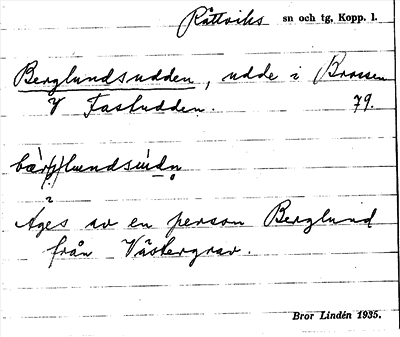 Rättviks sn och tg, Kopp. l.
Berglundsudden, udde i Brossen
V Fastudden. 79.
Äges av en person Berglund
från Västergrav.
Bror Lindén 1935.